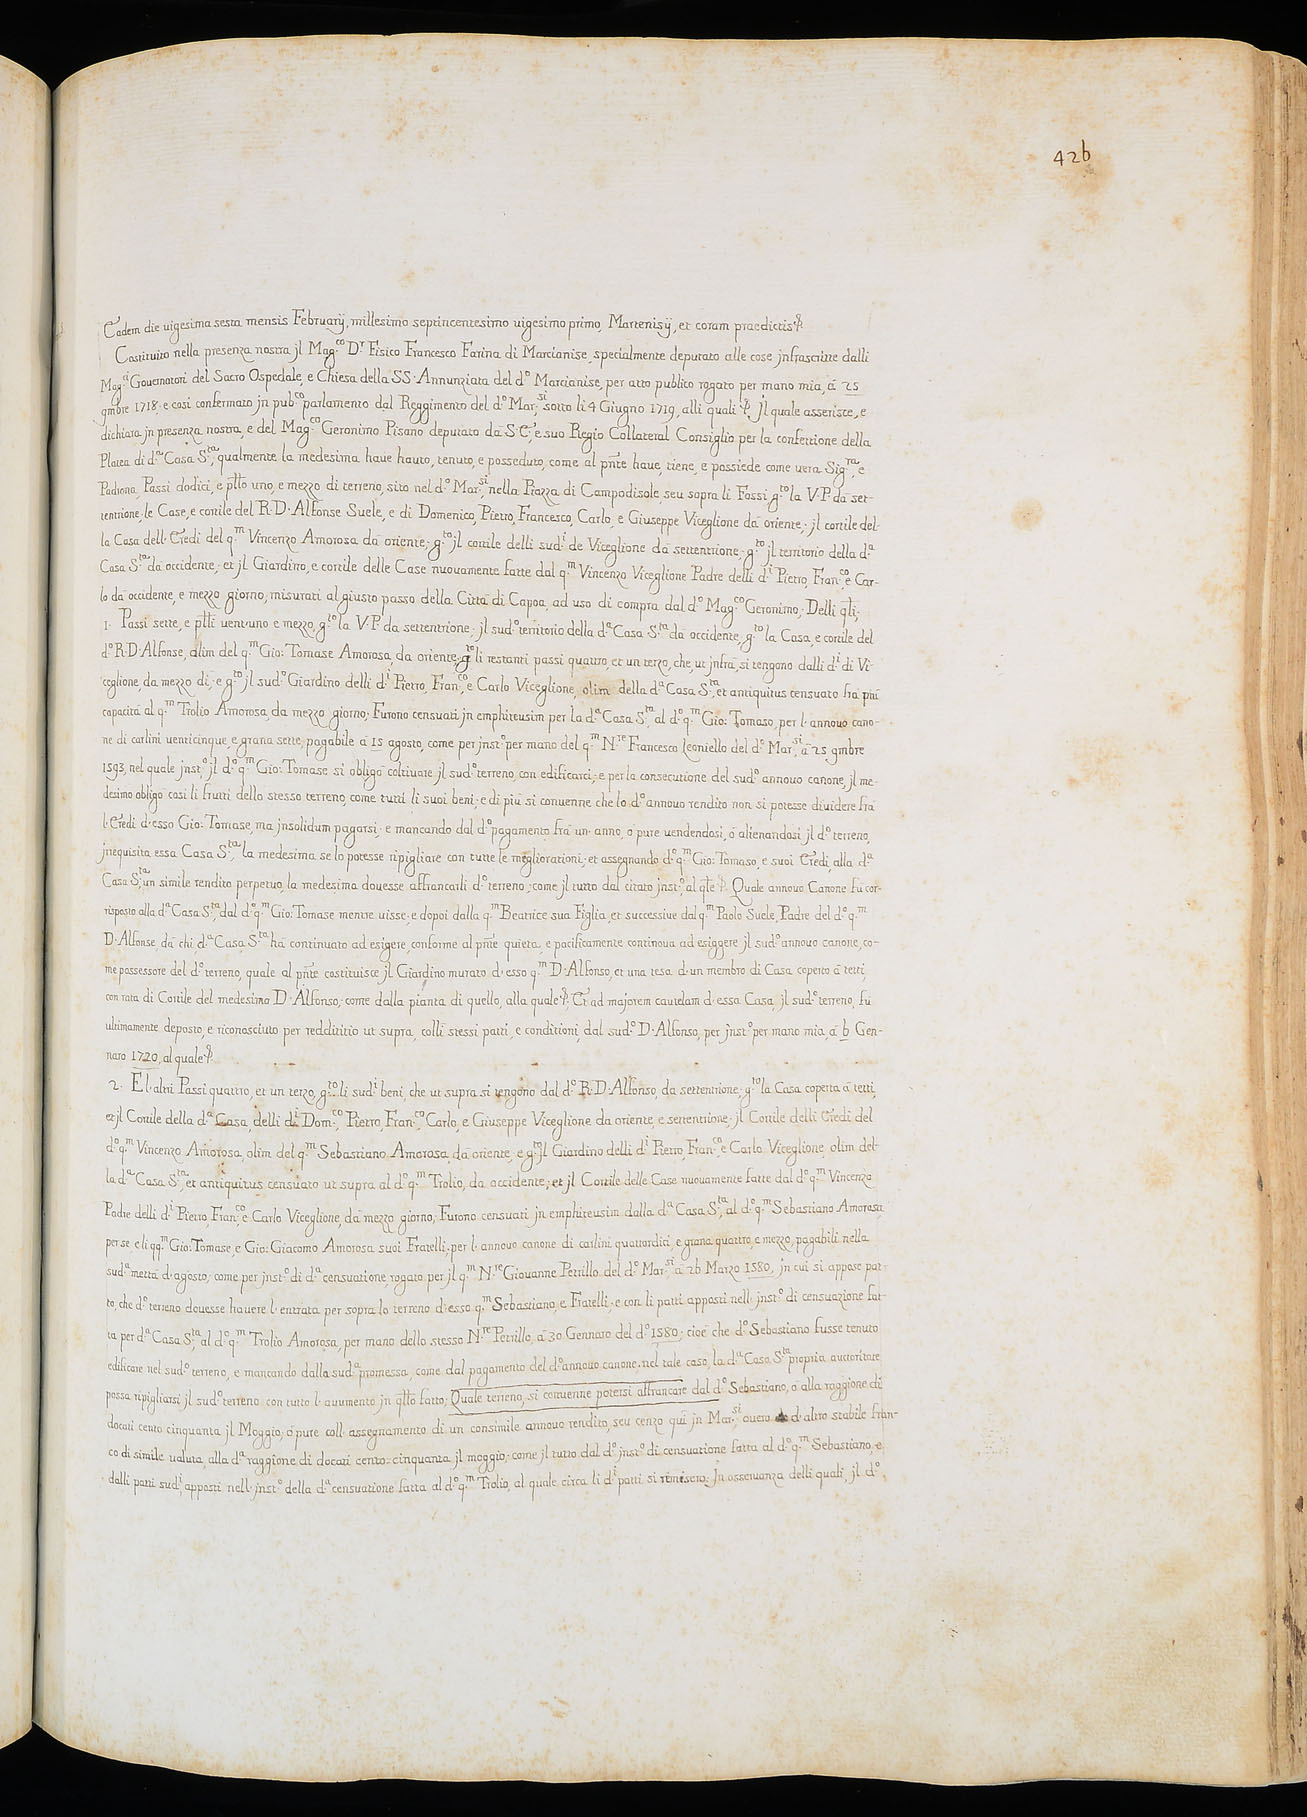 426
Eadem die uigesima sesta mensis Februarij, millesimo septincentesimo uigesimo primo, Martenisij, et coram praedictis &.
Costituito nella presenza nostra jl Mag.co D.r Fisico Francesco Farina di Marcianise, specialmente deputato alle cose jnfrascritte dalli
Mag.ci Gouernatori del Sacro Ospedale, e Chiesa della SS. Annunziata del d.o Marcianise, per atto publico rogato per mano mia, à 25
9mbre 1718, e così confermato jn pub.co parlamento dal Reggimento del d.o Mar.si sotto li 4 Giugno 1719, alli quali &. jl quale asserisce, e
dichiara jn presenza nostra, e del Mag.co Geronimo Pisano deputato da S. E., e suo Regio Collateral Consiglio per la confettione della
Platea di d.a Casa S.ta, qualmente la medesima haue hauto, tenuto, e posseduto, come al pnte haue, tiene, e possiede come uera Sig.ra, e
Padrona, Passi dodici, e ptto uno, e mezzo di terreno, sito nel d.o Mar.si, nella Piazza di Campodisole, seu sopra li Fossi, g.to la V. P. da set-
tentrione, le Case, e cortile del R. D. Alfonse Suele, e di Domenico, Pietro, Francesco, Carlo, e Giuseppe Viceglione da oriente; jl cortile del-
la Casa dell'Eredi del q.m Vincenzo Amorosa da oriente; g.to jl cortile delli sud.i de Viceglione da settentrione; g.to jl territorio della d.a
Casa S.ta da occidente; et jl Giardino, e cortile delle Case nuouamente fatte dal q.m Vincenzo Viceglione Padre delli d.i Pietro, Fran.co, e Car-
lo da occidente, e mezzo giorno; misurati al giusto passo della Città di Capoa, ad uso di compra dal d.o Mag.co Geronimo; Delli qli;
1. Passi sette, e ptti uent'uno e mezzo, g.to la V. P. da settentrione; jl sud.o territorio della d.a Casa S.ta da occidente, g.to la Casa, e cortile del
d.o R. D. Alfonse, olim del q.m Gio: Tomase Amorosa, da oriente; g.to li restanti passi quattro, et un terzo, che, ut jnfra, si tengono dalli d.i di Vi-
ceglione, da mezzo dì; e g.to jl sud.o Giardino delli d.i Pietro, Fran.co, e Carlo Viceglione, olim della d.a Casa S.ta, et antiquitus censuato frà
capacità al q.m Trolio Amorosa, da mezzo giorno; Furono censuati jn emphiteusim per la d.a Casa S.ta al d.o q.m Gio: Tomaso, per l'annouo cano-
ne di carlini uenticinque, e grana sette, pagabile à 15 agosto, come per jnst.o per mano del q.m N.re Francesco Leoniello del d.o Mar.si à 25 9mbre
1593, nel quale jnst.o jl d.o q.m Gio: Tomase si obligò coltiuare jl sud.o terreno, con edificarci; e per la consecutione del sud.o annouo canone, jl me-
desimo obligò così li frutti dello stesso terreno, come tutti li suoi beni; e di più si conuenne che lo d.o annouo rendito non si potesse diuidere frà
l'Eredi d'esso Gio: Tomase, ma jnsolidum pagarsi; e mancando dal d.o pagamento frà un'anno, ò pure uendendosi, ò alienandosi jl d.o terreno,
jrrequisita essa Casa S.ta, la medesima se lo potesse ripigliare con tutte le megliorationi; et assegnando d.o q.m Gio: Tomaso, e suoi Eredi, alla d.a
Casa S.ta, un simile rendito perpetuo, la medesima douesse affrancarli d.o terreno; come jl tutto dal citato jnst.o, al qle &. Quale annouo Canone fù cor-
risposto alla d.a Casa S.ta, dal d.o q.m Gio: Tomase mentre uisse, e dopoi dalla q.m Beatrice sua Figlia, et successiue dal q.m Paolo Suele, Padre del d.o q.m
D. Alfonse, da chi d.a Casa S.ta hà continuato ad esigere, conforme al pnte quieta, e pacificamente continoua ad esiggere jl sud.o annouo canone, co-
me possessore del d.o terreno, quale al pnte costituisce jl Giardino murato d'esso q.m D. Alfonso, et una tesa d'un membro di Casa coperto à tetti,
con rata di Cortile del medesimo D. Alfonso; come dalla pianta di quello, alla quale &. Et ad majorem cautelam d'essa Casa, jl sud.o terreno, fù
ultimamente deposto, e riconosciuto per reddititio ut supra, colli stessi patti, e conditioni, dal sud.o D. Alfonso, per jnst.o per mano mia, à 6 Gen-
naro 1720, al quale &.
2. E l'altri Passi quattro, et un terzo, g.to li sud.i beni, che ut supra si tengono dal d.o R. D. Alfonso, da settentrione; g.to la Casa coperta à tetti,
et jl Cortile della d.a Casa, delli d.i Dom.co, Pietro, Fran.co, Carlo, e Giuseppe Viceglione da oriente, e settentrione; jl Cortile delli Eredi del
d.o q.m Vincenzo Amorosa, olim del q.m Sebastiano Amorosa, da oriente, e g.to jl Giardino delli d.i Pietro, Fran.co, e Carlo Viceglione, olim del-
la d.a Casa S.ta, et antiquitus censuato ut supra al d.o q.m Trolio, da occidente; et jl Cortile delle Case nuouamente fatte dal d.o q.m Vincenzo
Padre delli d.i Pietro, Fran.co, e Carlo Viceglione, da mezzo giorno; Furono censuati jn emphiteusim dalla d.a Casa S.ta, al d.o q.m Sebastiano Amorosa
per se, e li qq.m Gio: Tomase, e Gio: Giacomo Amorosa suoi Fratelli, per l'annouo canone di carlini quattordici, e grana quattro, e mezzo, pagabili nella
sud.a mettà d'agosto; come per jnst.o di d.a censuatione, rogato per jl q.m N.re Giouanne Petrillo del d.o Mar.si à 26 Marzo 1580, jn cui si appose pat-
to, che d.o terreno douesse hauere l'entrata per sopra lo terreno d'esso q.m Sebastiano, e Fratelli; e con li patti apposti nell'jnst.o di censuazione fat-
ta per d.a Casa S.ta al d.o q.m Trolio Amorosa, per mano dello stesso N.re Petrillo, à 30 Gennaro del d.o 1580; cioè che d.o Sebastiano fusse tenuto
edificare nel sud.o terreno, e mancando dalla sud.a promessa, come dal pagamento del d.o annouo canone, nel tale caso, la d.a Casa S.ta propria auctoritate
possa ripigliarsi jl sud.o terreno con tutto l'aumento jn qllo fatto; Quale terreno, si conuenne potersi affrancare dal d.o Sebastiano, ò alla raggione di
docati cento cinquanta jl Moggio; ò pure coll'assegnamento di un consimile annouo rendito, seu cenzo quì jn Mar.si, ouero d'altro stabile Fran-
co di simile ualuta, alla d.a raggione di docati cento-cinquanta jl moggio; come jl tutto dal d.o jnst.o di censuatione fatta al d.o q.m Sebastiano, e
dalli patti sud.i, apposti nell'jnst.o della d.a censuatione fatta al d.o q.m Trolio, al quale circa li d.i patti si rimisero; Jn osseruanza delli quali, jl d.o